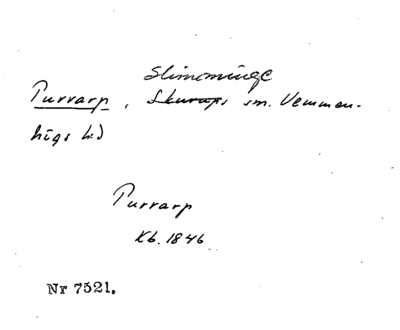 Slimminge
Purrarp, Skurups sm. Vemmen-
högs hd
Purrarp
Kb. 1846
Nr 7521.